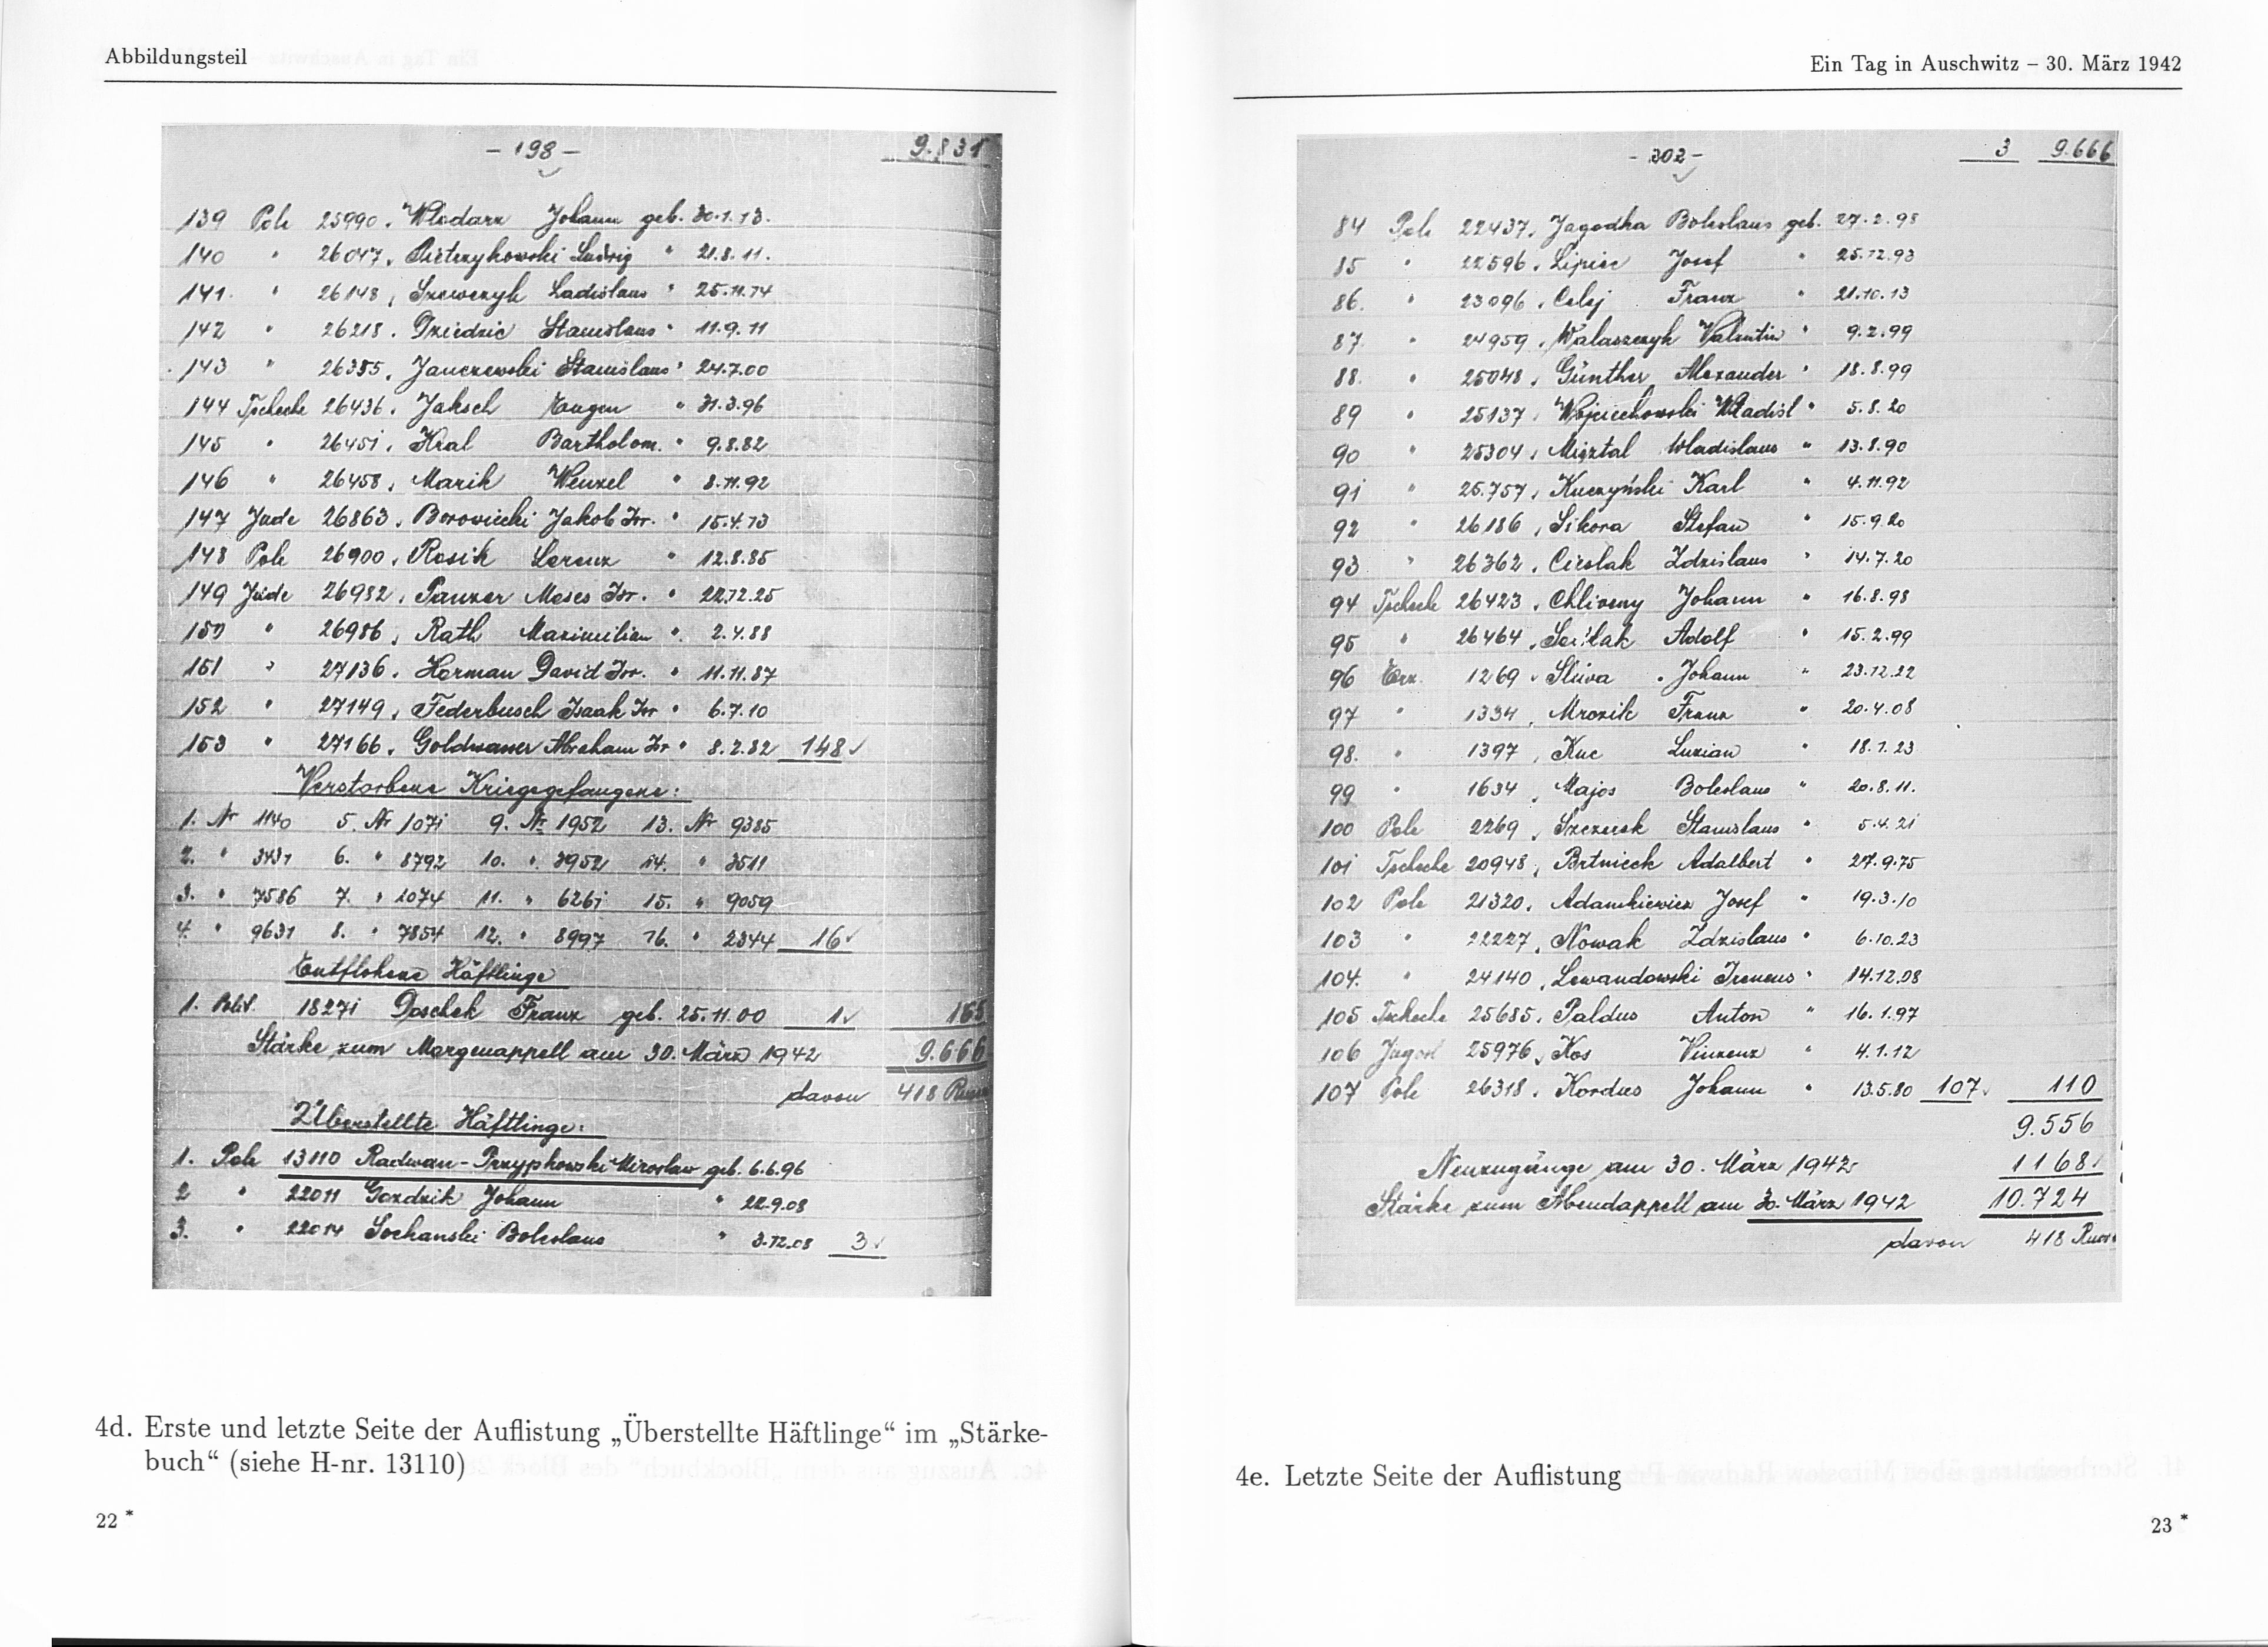 Abbildungsteil
- 198 - 9.831
139 Pole 25990, Wlodarz Johann geb. 30.1.13.
140 " 26047, Pietrzykowski Ludwig " 21.8.11.
141. " 26148, Szewczyk Ladislaus " 25.11.14
142 " 26218. Dziedzic Stanislaus " 11.9.11
143 " 26385, Janczewski Stanislaus " 24.7.00
144 Tscheche 26436, Jaksch Eugen " 31.3.96
145 " 26451, Kral Bartholom. " 9.8.82
146 " 26458, Marik Wenzel " 8.11.92
147 Jude 26863, Borowiecki Jakob Isr. " 15.4.13
148 Pole 26900, Rosik Lorenz " 12.8.85
149 Jude 26982, Panzer Moses Isr. " 22.12.25
150 " 26986, Rath Maximilian " 2.4.88
151 " 27136. Herman David Isr. " 11.11.87
152 " 27149, Federbusch Isaak Isr " 6.7.10
153 " 27166. Abraham Isr " 8.2.82 148
Verstorbene Kriegsgefangene:
1. Nr 1140 5. Nr 1071 9. Nr 1952 13. Nr 9385
2. " 3431 6. " 8792 10. " 3952 14. " 3511
3. " 7586 7. " 1074 11. " 6261 15. " 9059
4. " 9631 8. " 7854 12. " 8997 16. " 2344 16
Entflohene Häftlinge
1. Polit. 18271 Doschek Franz geb. 25.11.00 1 165
Stärke zum Morgenappell am 30. März 1942 9.666
davon 418
Überstellte Häftlinge:
1. Pole 13110 Radwan-Przypkowski Miroslaw geb. 6.6.96
2 " 22011 Gozdzik Johann " 22.9.08
3. " 22014 Sochanski Boleslaus " 3.12.08 3
4d. Erste und letzte Seite der Auflistung „Überstellte Häftlinge“ im „Stärke-
buch“ (siehe H-nr. 13110)
22 *
Ein Tag in Auschwitz – 30. März 1942
- 202 - 3 9.666
84 Pole 22437, Jagodka Boleslaus geb. 27.2.98
85 " 22596, Lipiec Josef " 25.12.93
86. " 23096, Celej Franz " 21.10.13
87. " 24959, Walaszczyk Valentin " 9.2.99
88. " 25048, Günther Alexander " 18.8.99
89 " 25137, Wojciechowski Wladisl " 5.8.20
90 " 25304, Misztal Wladislaus " 13.8.90
91 " 25.757, Kuczyński Karl " 4.11.92
92 " 26186, Sikora Stefan " 15.9.20
93 " 26362, Cieslak Zdzislaus " 14.7.20
94 Tscheche 26423, Chliveny Johann " 16.8.98
95 " 26464, Adolf " 15.2.99
96 Erz. 1269, Sliwa Johann " 23.12.22
97 " 1334, Mrozik Franz " 20.4.08
98. " 1397, Kuc Luzian " 18.1.23
99 " 1634, Majos Boleslaus " 20.8.11.
100 Pole 2269, Stanislaus " 5.4.21
101 Tscheche 20948, Brtnieck Adalbert " 27.9.75
102 Pole 21320, Adamkiewicz Josef " 19.3.10
103 " 22227, Nowak Zdzislaus " 6.10.23
104. " 24140, Lewandowski Ireneus " 14.12.08
105 Tscheche 25685, Paldus Anton " 16.1.97
106 Jugosl 25976, Kos Vinzenz " 4.1.12
107 Pole 26318, Kordus Johann " 13.5.80 107 110
9.556
Neuzugänge am 30. März 1942 1168
Stärke zum Abendappell am 30. März 1942 10.724
davon 418
4e. Letzte Seite der Auflistung
23 *